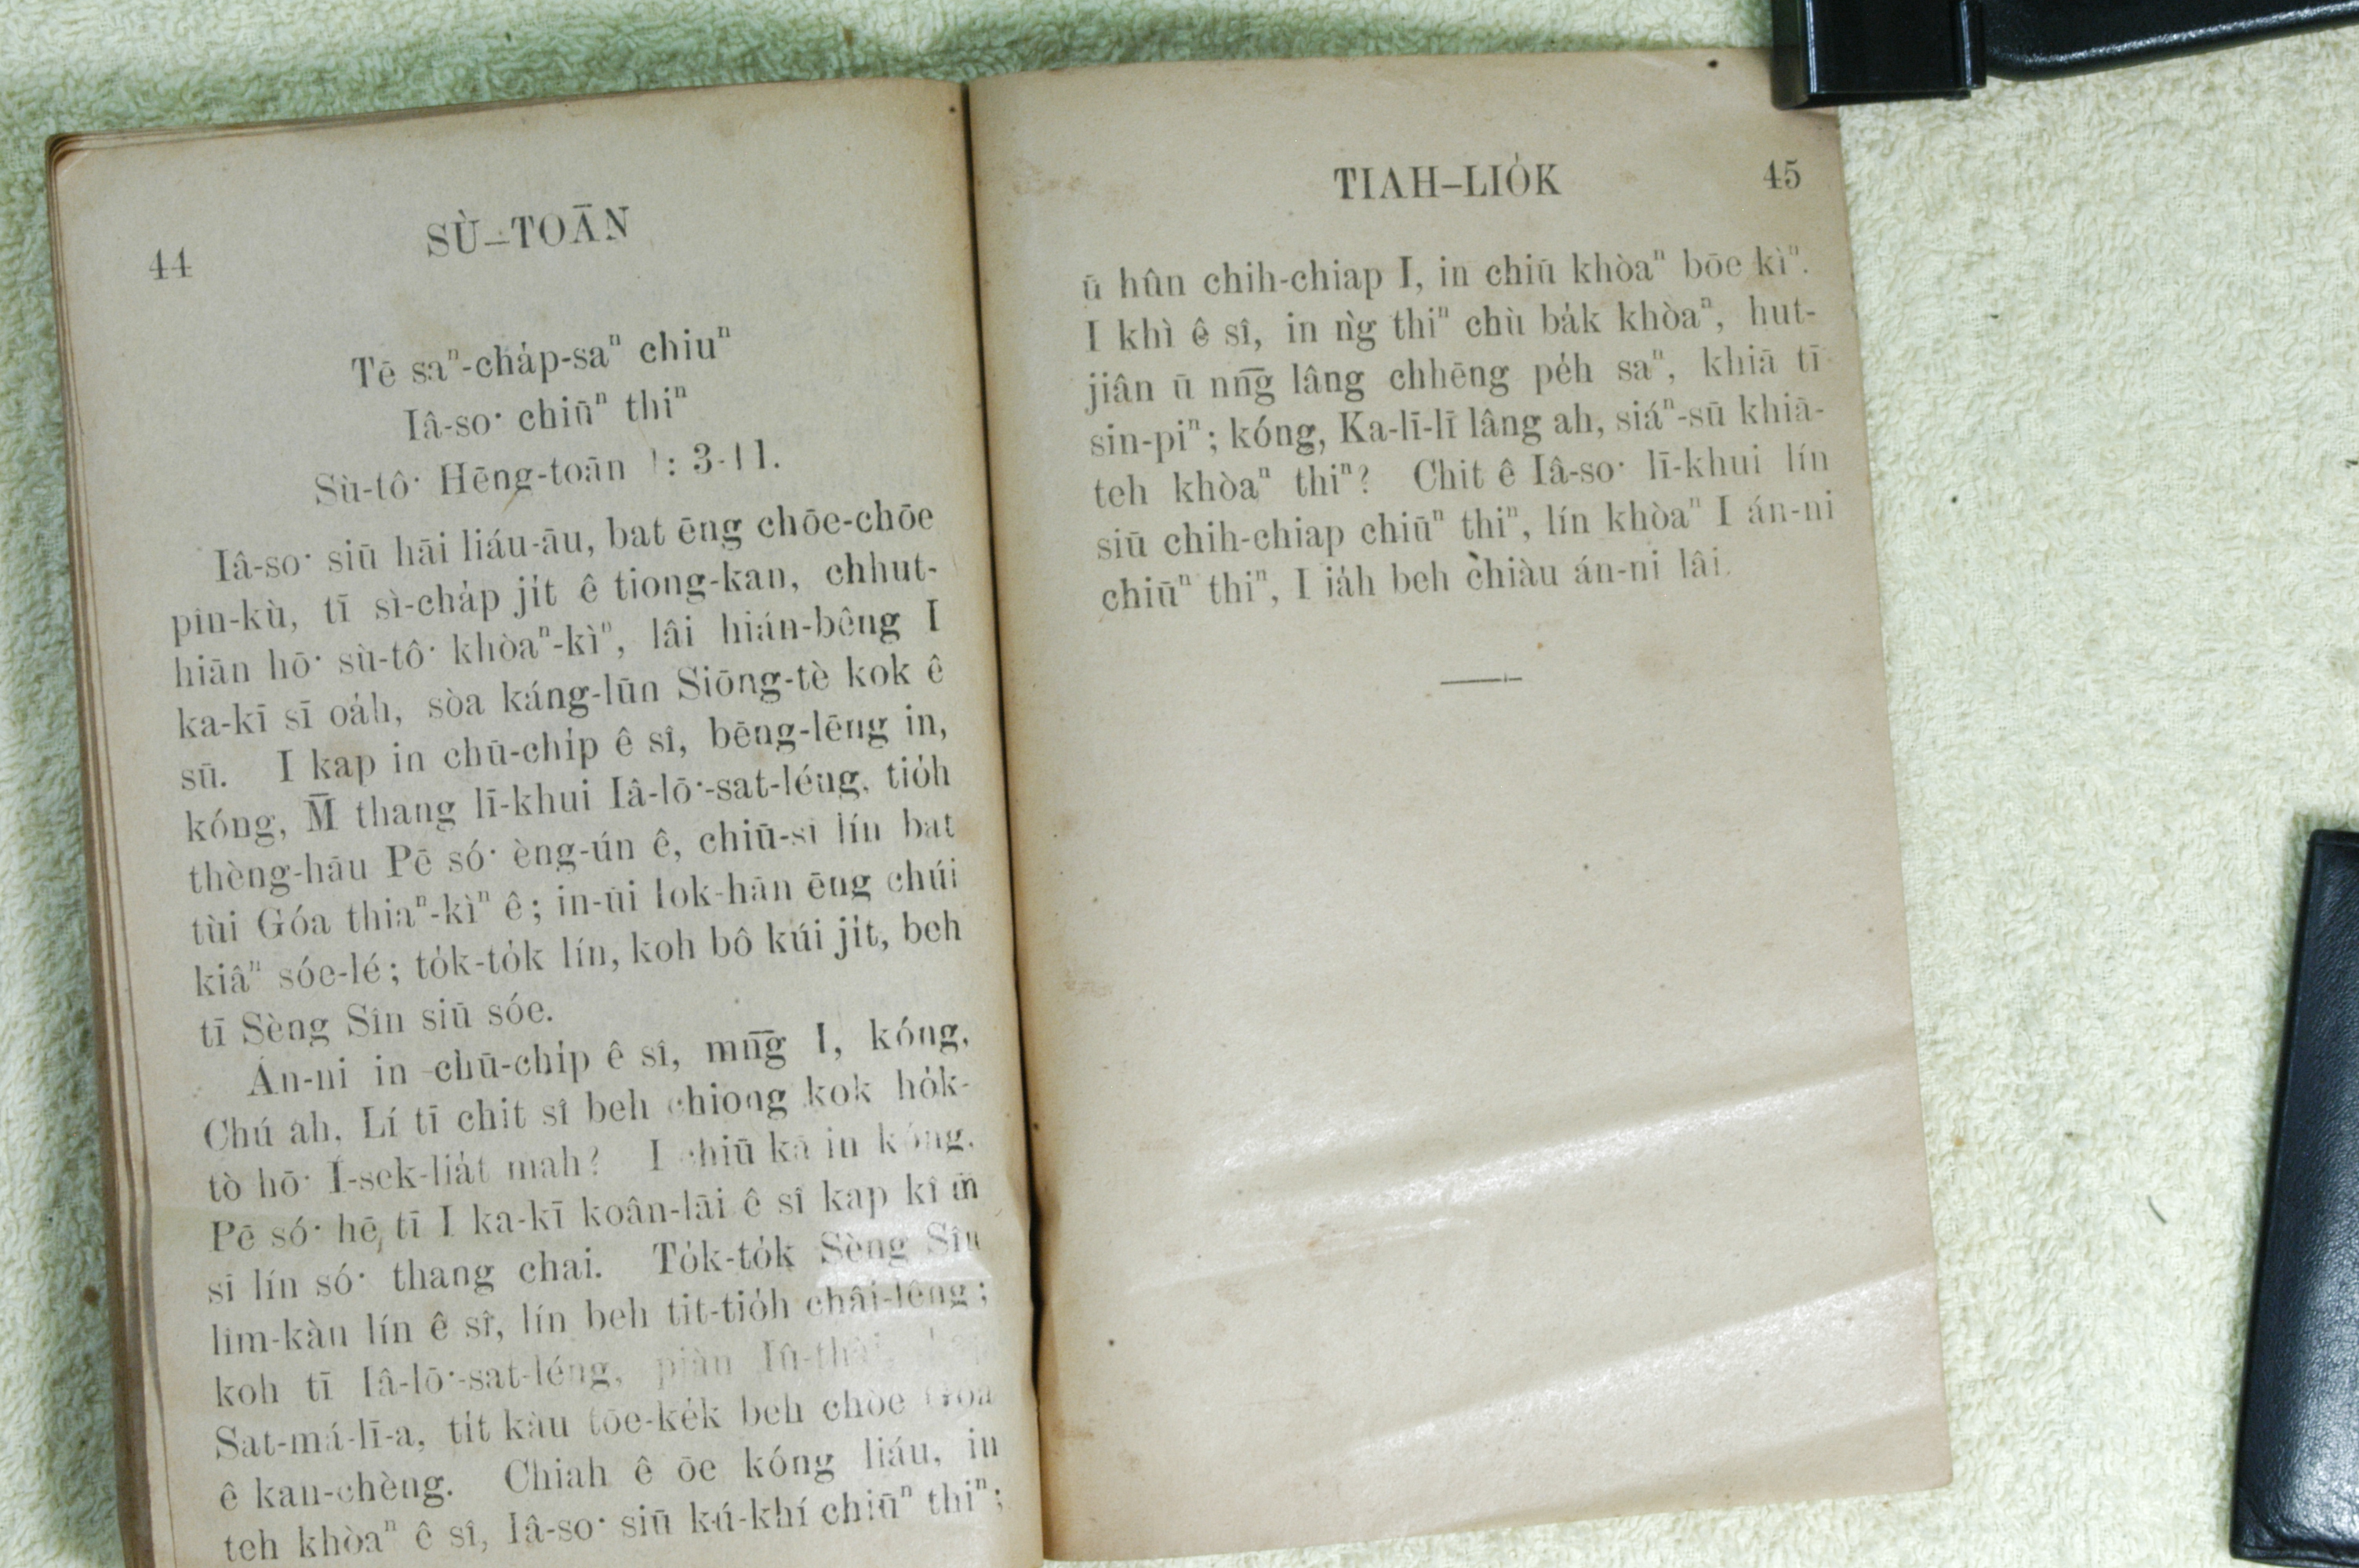 44
SÙ–TOĀN
Tē saⁿ-cha̍p-saⁿ chiuⁿ
Iâ-so͘ chiūⁿ thiⁿ
Sù-tô͘ Hēng-toān 1: 3-11.
Iâ-so͘ siū hāi liáu-āu, bat ēng chōe-chōe
pîn-kù, tī sì-cha̍p ji̍t ê tiong-kan, chhut-
hiān hō͘ sù-tô͘ khòaⁿ-kìⁿ, lâi hián-bêng I
ka-kī sī oa̍h, sòa káng-lūn Siōng-tè kok ê
sū. I kap in chū-chi̍p ê sî, bēng-lēng in,
kóng, M̄ thang lī-khui Iâ-lō͘-sat-léng, tio̍h
thèng-hāu Pē só͘ èng-ún ê, chiū-sī lín bat
tùi Góa thiaⁿ-kìⁿ ê; in-ūi Iok-hān ēng chúi
kiâⁿ sóe-lé; to̍k-to̍k lín, koh bô kúi ji̍t, beh
tī Sèng Sîn siū sóe.
Án-ni in chū-chi̍p ê sî, mn̄g I, kóng,
Chú ah, Lí tī chit sî beh chiong kok ho̍k-
tò hō͘ Í-sek-lia̍t mah? I chiū kā in kóng,
Pē só͘ hē tī I ka-kī koân-lāi ê sî kap kî m̄
sī lín só͘ thang chai. To̍k-to̍k Sèng Sîn
lîm-kàu lín ê sî, lín beh tit-tio̍h châi-lêng;
koh tī Iâ-lō͘-sat-léng, piàn Iû-thài,
Sat-má-lī-a, ti̍t kàu tōe-ke̍k beh chòe Góa
ê kan-chèng. Chiah ê ōe kóng liáu, in
teh khòaⁿ ê sî, Iâ-so͘ siū kú-khí chiūⁿ thiⁿ;
TIAH–LIO̍K
45
ū hûn chih-chiap I, in chiū khòaⁿ bōe kìⁿ.
I khì ê sî, in ǹg thiⁿ chù ba̍k khòaⁿ, hut-
jiân ū nn̄g lâng chhēng pe̍h saⁿ, khiā tī
sin-piⁿ; kóng, Ka-lī-lī lâng ah, siáⁿ-sū khiā-
teh khòaⁿ thiⁿ? Chit ê Iâ-so͘ lī-khui lín
siū chih-chiap chiūⁿ thiⁿ, lín khòaⁿ I án-ni
chiūⁿ thiⁿ, I ia̍h beh chiàu án-ni lâi.